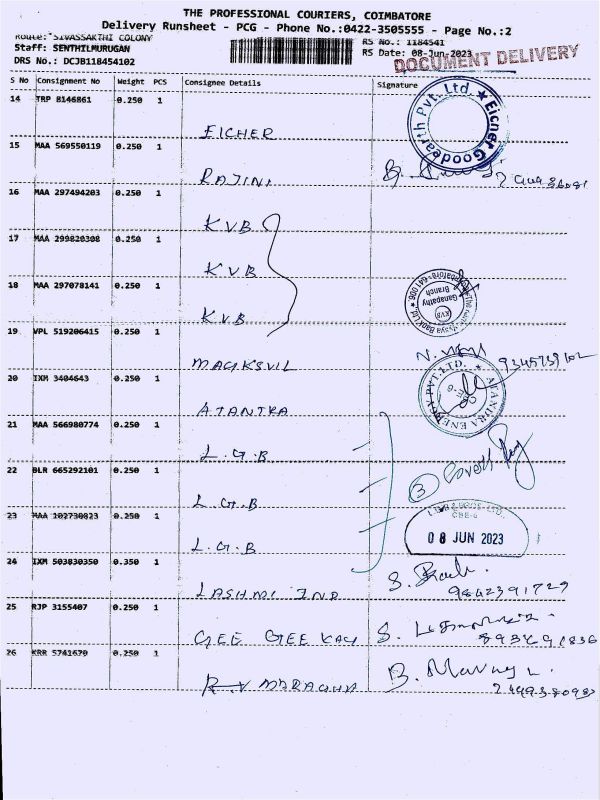 THE PROFESSIONAL COURIERS, COIMBATORE
Delivery Runsheet - PCG - Phone No.:0422-3505555 - Page No.:2
Route: SIVASSAKTHI COLONY
RS No.: 1184541
Staff: SENTHILMURUGAN
RS Date: 08-Jun-2023
DOCUMENT DELIVERY
DRS No.: DCJB118454102
S No Consignment No Weight PCS Consignee Details Signature
14 TRP 8146861 0.250 1
EICHER
Eicher Goodearth Pvt. Ltd.
15 MAA 569550119 0.250 1
RAJINI
16 MAA 297494203 0.250 1
KVB
17 MAA 299820308 0.250 1
KVB
18 MAA 297078141 0.250 1
KVB
Ganapathy
Branch
KVB
19 VPL 519206415 0.250 1
MAGIKSVIL
20 IXM 3404643 0.250 1
ATANTRA
ATANDRA ENERGY PVT.LTD.
CBE-6
21 MAA 566980774 0.250 1
L.G.B
22 BLR 665292101 0.250 1
L.G.B
3
23 MAA 102730823 0.250 1
L.G.B
CBE-6
08 JUN 2023
24 IXM 503830350 0.350 1
LASHMI IND
9842391729
25 RJP 3155407 0.250 1
GEE GEE KAY
26 KRR 5741670 0.250 1